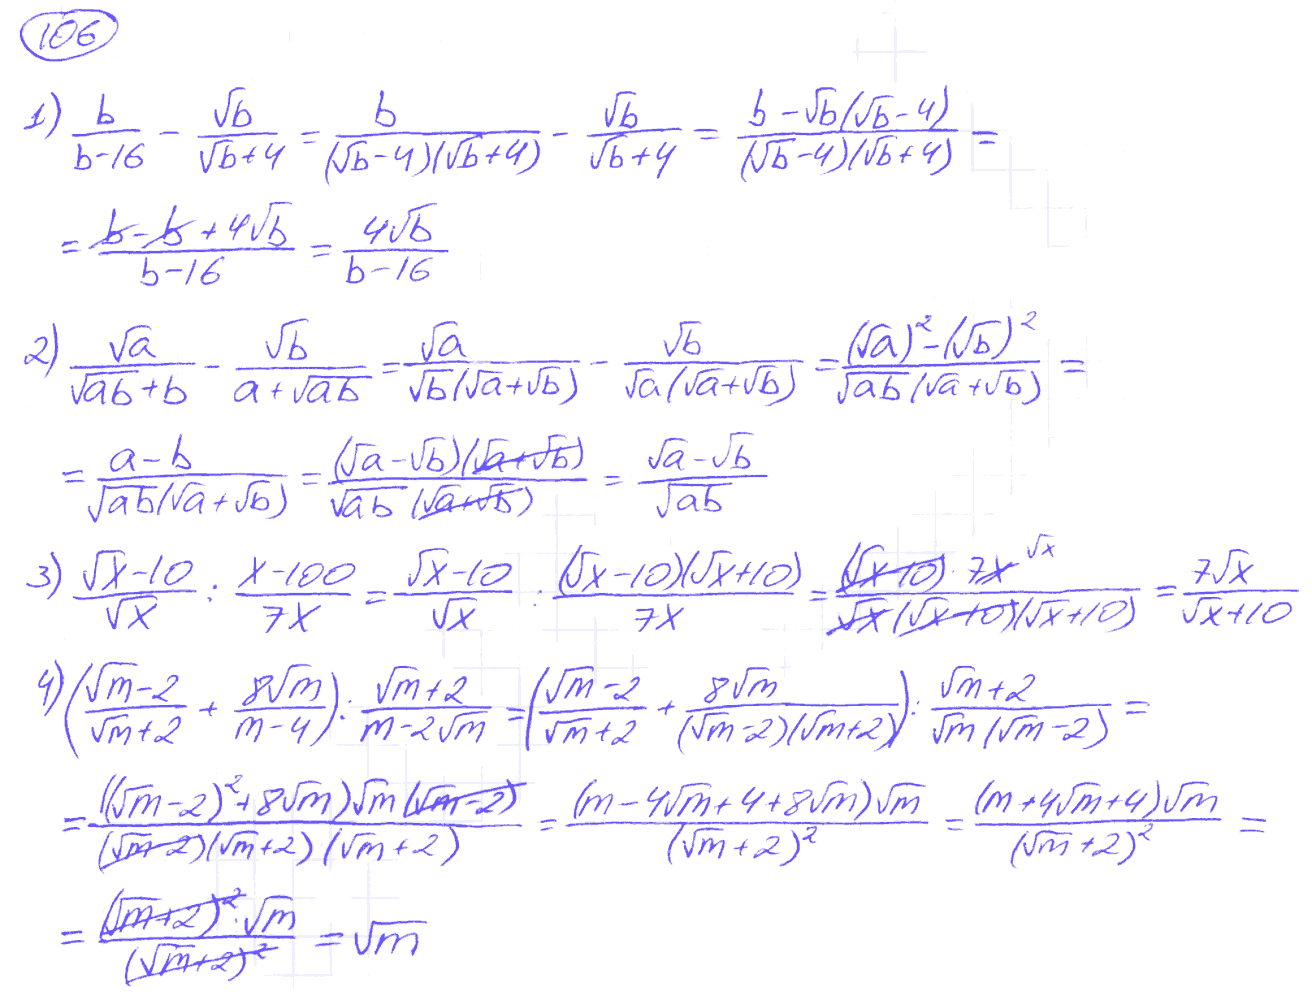 106
1) b/(b-16) - √b/(√b+4) = b/((√b-4)(√b+4)) - √b/(√b+4) = (b-√b(√b-4))/((√b-4)(√b+4)) =
= (b-b+4√b)/(b-16) = 4√b/(b-16)
2) √a/(√ab+b) - √b/(a+√ab) = √a/(√b(√a+√b)) - √b/(√a(√a+√b)) = ((√a)²-(√b)²)/(√ab(√a+√b)) =
= (a-b)/(√ab(√a+√b)) = ((√a-√b)(√a+√b))/(√ab(√a+√b)) = (√a-√b)/√ab
3) (√x-10)/√x : (x-100)/7x = (√x-10)/√x : ((√x-10)(√x+10))/7x = ((√x-10)·7x √x)/(√x(√x-10)(√x+10)) = 7√x/(√x+10)
4) ((√m-2)/(√m+2) + 8√m/(m-4)) : (√m+2)/(m-2√m) = ((√m-2)/(√m+2) + 8√m/((√m-2)(√m+2))) : (√m+2)/(√m(√m-2)) =
= (((√m-2)²+8√m)√m(√m-2))/((√m-2)(√m+2)(√m+2)) = ((m-4√m+4+8√m)√m)/(√m+2)² = ((m+4√m+4)√m)/(√m+2)² =
= ((√m+2)²·√m)/(√m+2)² = √m